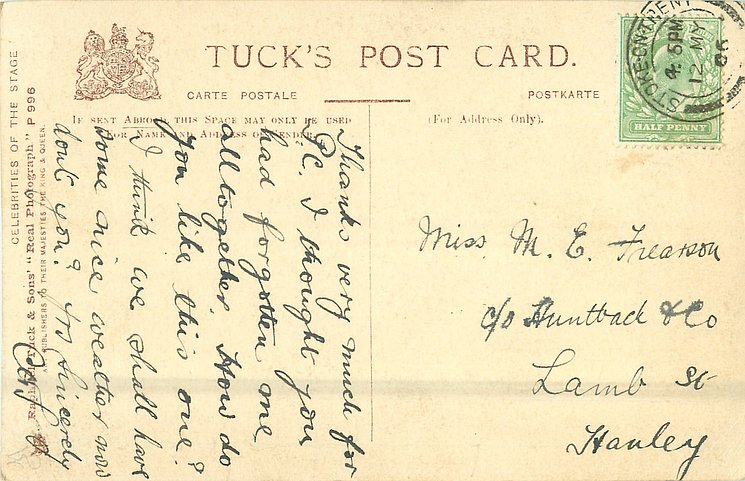 TUCK'S POST CARD.
CARTE POSTALE
POSTKARTE
IF SENT ABROAD THIS SPACE MAY ONLY BE USED
FOR NAME AND ADDRESS OF SENDER.
(For Address Only).
CELEBRITIES OF THE STAGE
Raphael Tuck & Sons' "Real Photograph" P 996
ART PUBLISHERS TO THEIR MAJESTIES THE KING & QUEEN.
STOKE-ON-TRENT
4. 5 PM
12 MY
06
HALF PENNY
Thanks very much for
P.C. I thought you
had forgotten me
alltogether. How do
you like this one?
I think we shall have
some nice weather now
dont you? Yrs Sincerely
Miss M. E. Frearson
c/o Huntbach & Co
Lamb St
Hanley